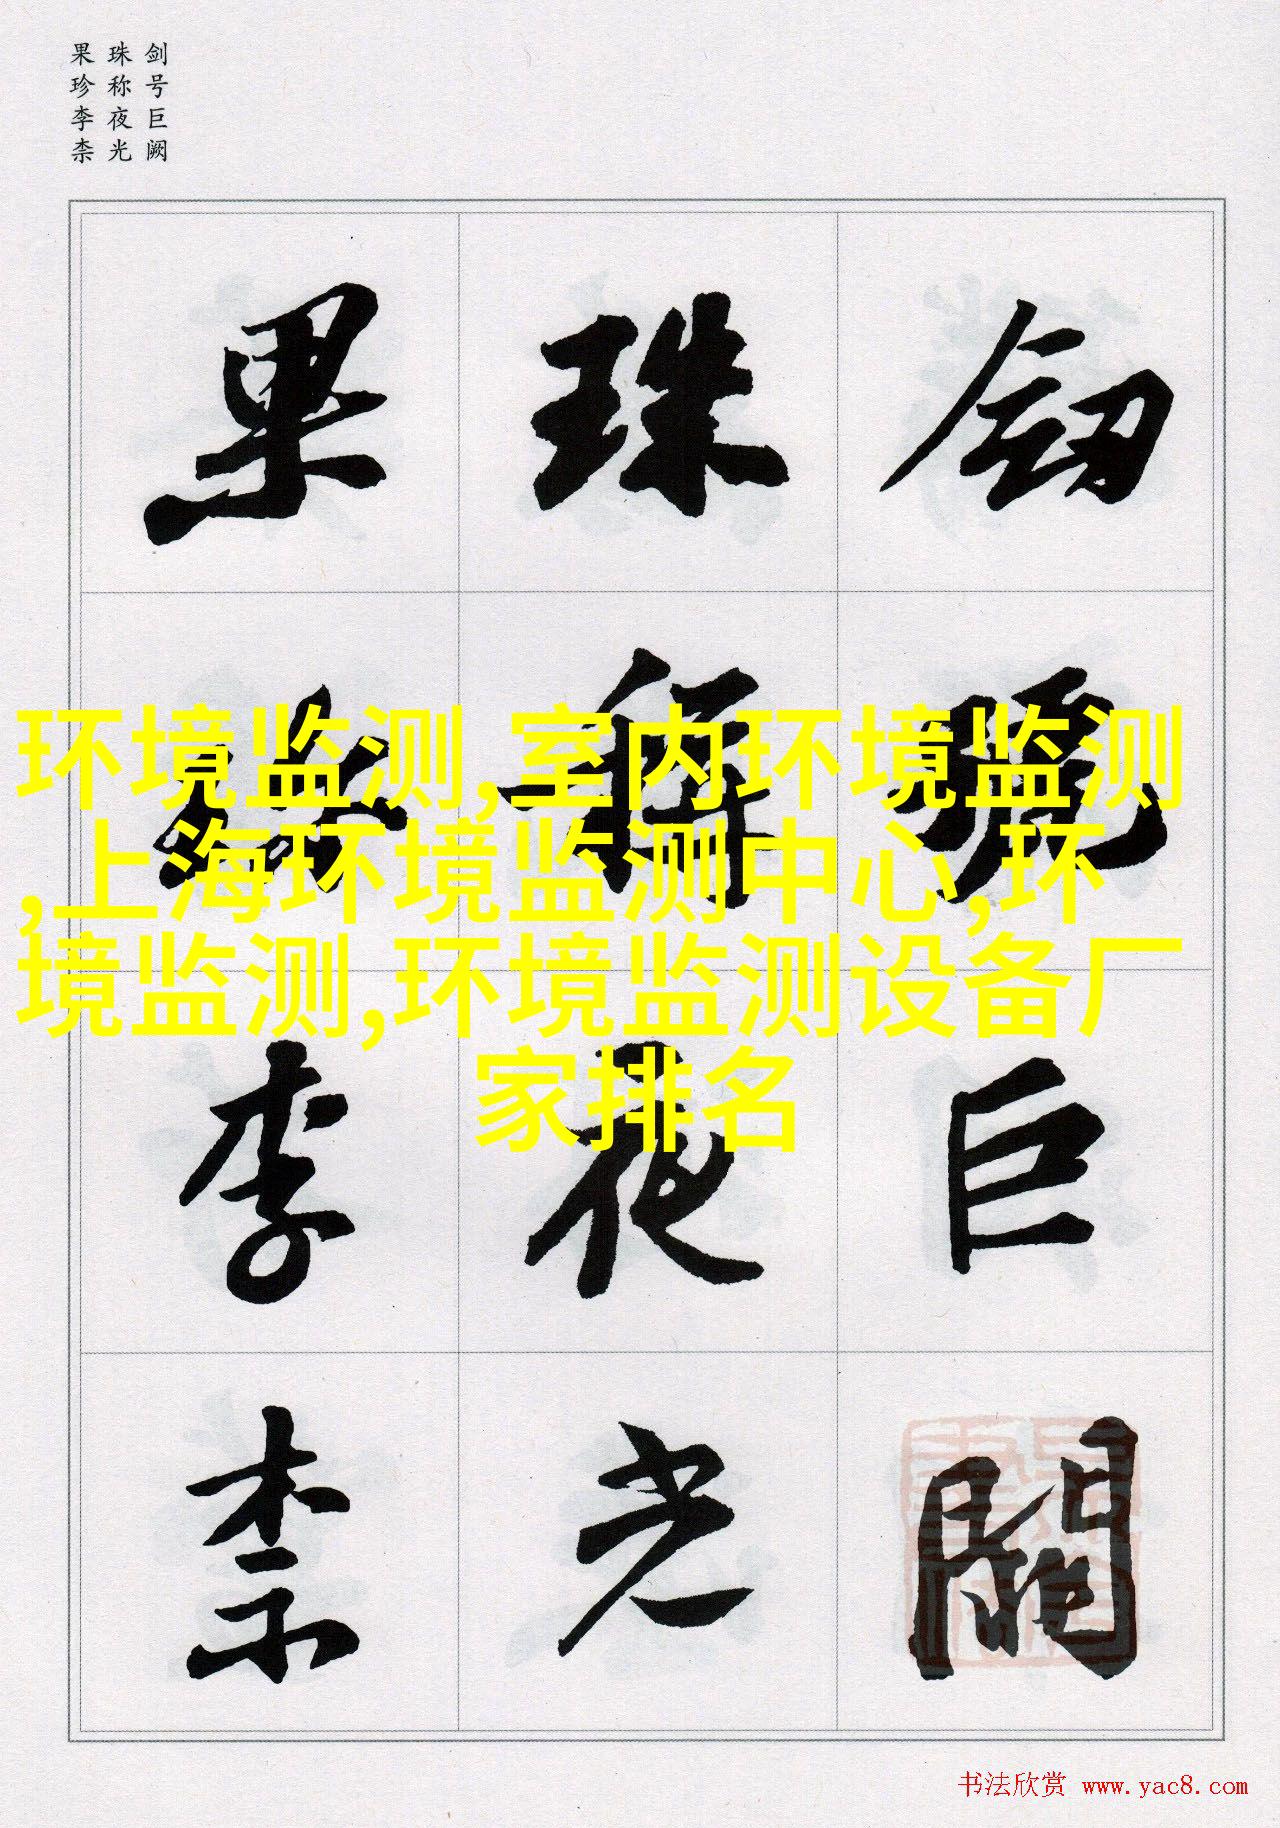 剑号巨阙
珠称夜光
果珍李柰
劒號巨闕
珠稱夜光
果珎李柰
环境监测,室内环境监测
,上海环境监测中心,环
境监测,环境监测设备厂
家排名
书法欣赏 www.yac8.com